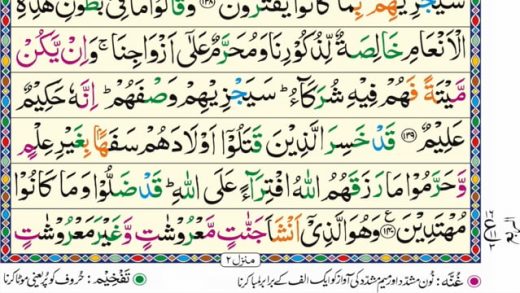 سَيَجْزِيْهِمْ بِمَا كَانُوْا يَفْتَرُوْنَ ﴿۱۳۸﴾ وَقَالُوْا مَا فِيْ بُطُوْنِ هٰذِهِ
الْاَنْعَامِ خَالِصَةٌ لِّذُكُوْرِنَا وَمُحَرَّمٌ عَلٰۤى اَزْوَاجِنَا ۚ وَاِنْ يَّكُنْ
مَّيْتَةً فَهُمْ فِيْهِ شُرَكَآءُ ؕ سَيَجْزِيْهِمْ وَصْفَهُمْ ؕ اِنَّهٗ حَكِيْمٌ
عَلِيْمٌ ﴿۱۳۹﴾ قَدْ خَسِرَ الَّذِيْنَ قَتَلُوْۤا اَوْلَادَهُمْ سَفَهًاۢ بِغَيْرِ عِلْمٍ
وَّحَرَّمُوْا مَا رَزَقَهُمُ اللّٰهُ افْتِرَآءً عَلَى اللّٰهِ ؕ قَدْ ضَلُّوْا وَمَا كَانُوْا
مُهْتَدِيْنَ ﴿۱۴۰﴾ ع وَهُوَ الَّذِيْۤ اَنْشَاَ جَنّٰتٍ مَّعْرُوْشٰتٍ وَّغَيْرَ مَعْرُوْشٰتٍ
منزل ۲
غُنَّه: نون مشدّد اور میم مشدّد کی آواز کو ایک الف کے برابر لمبا کرنا تَفْخِيْم: حروف کو پُر یعنی موٹا کرنا